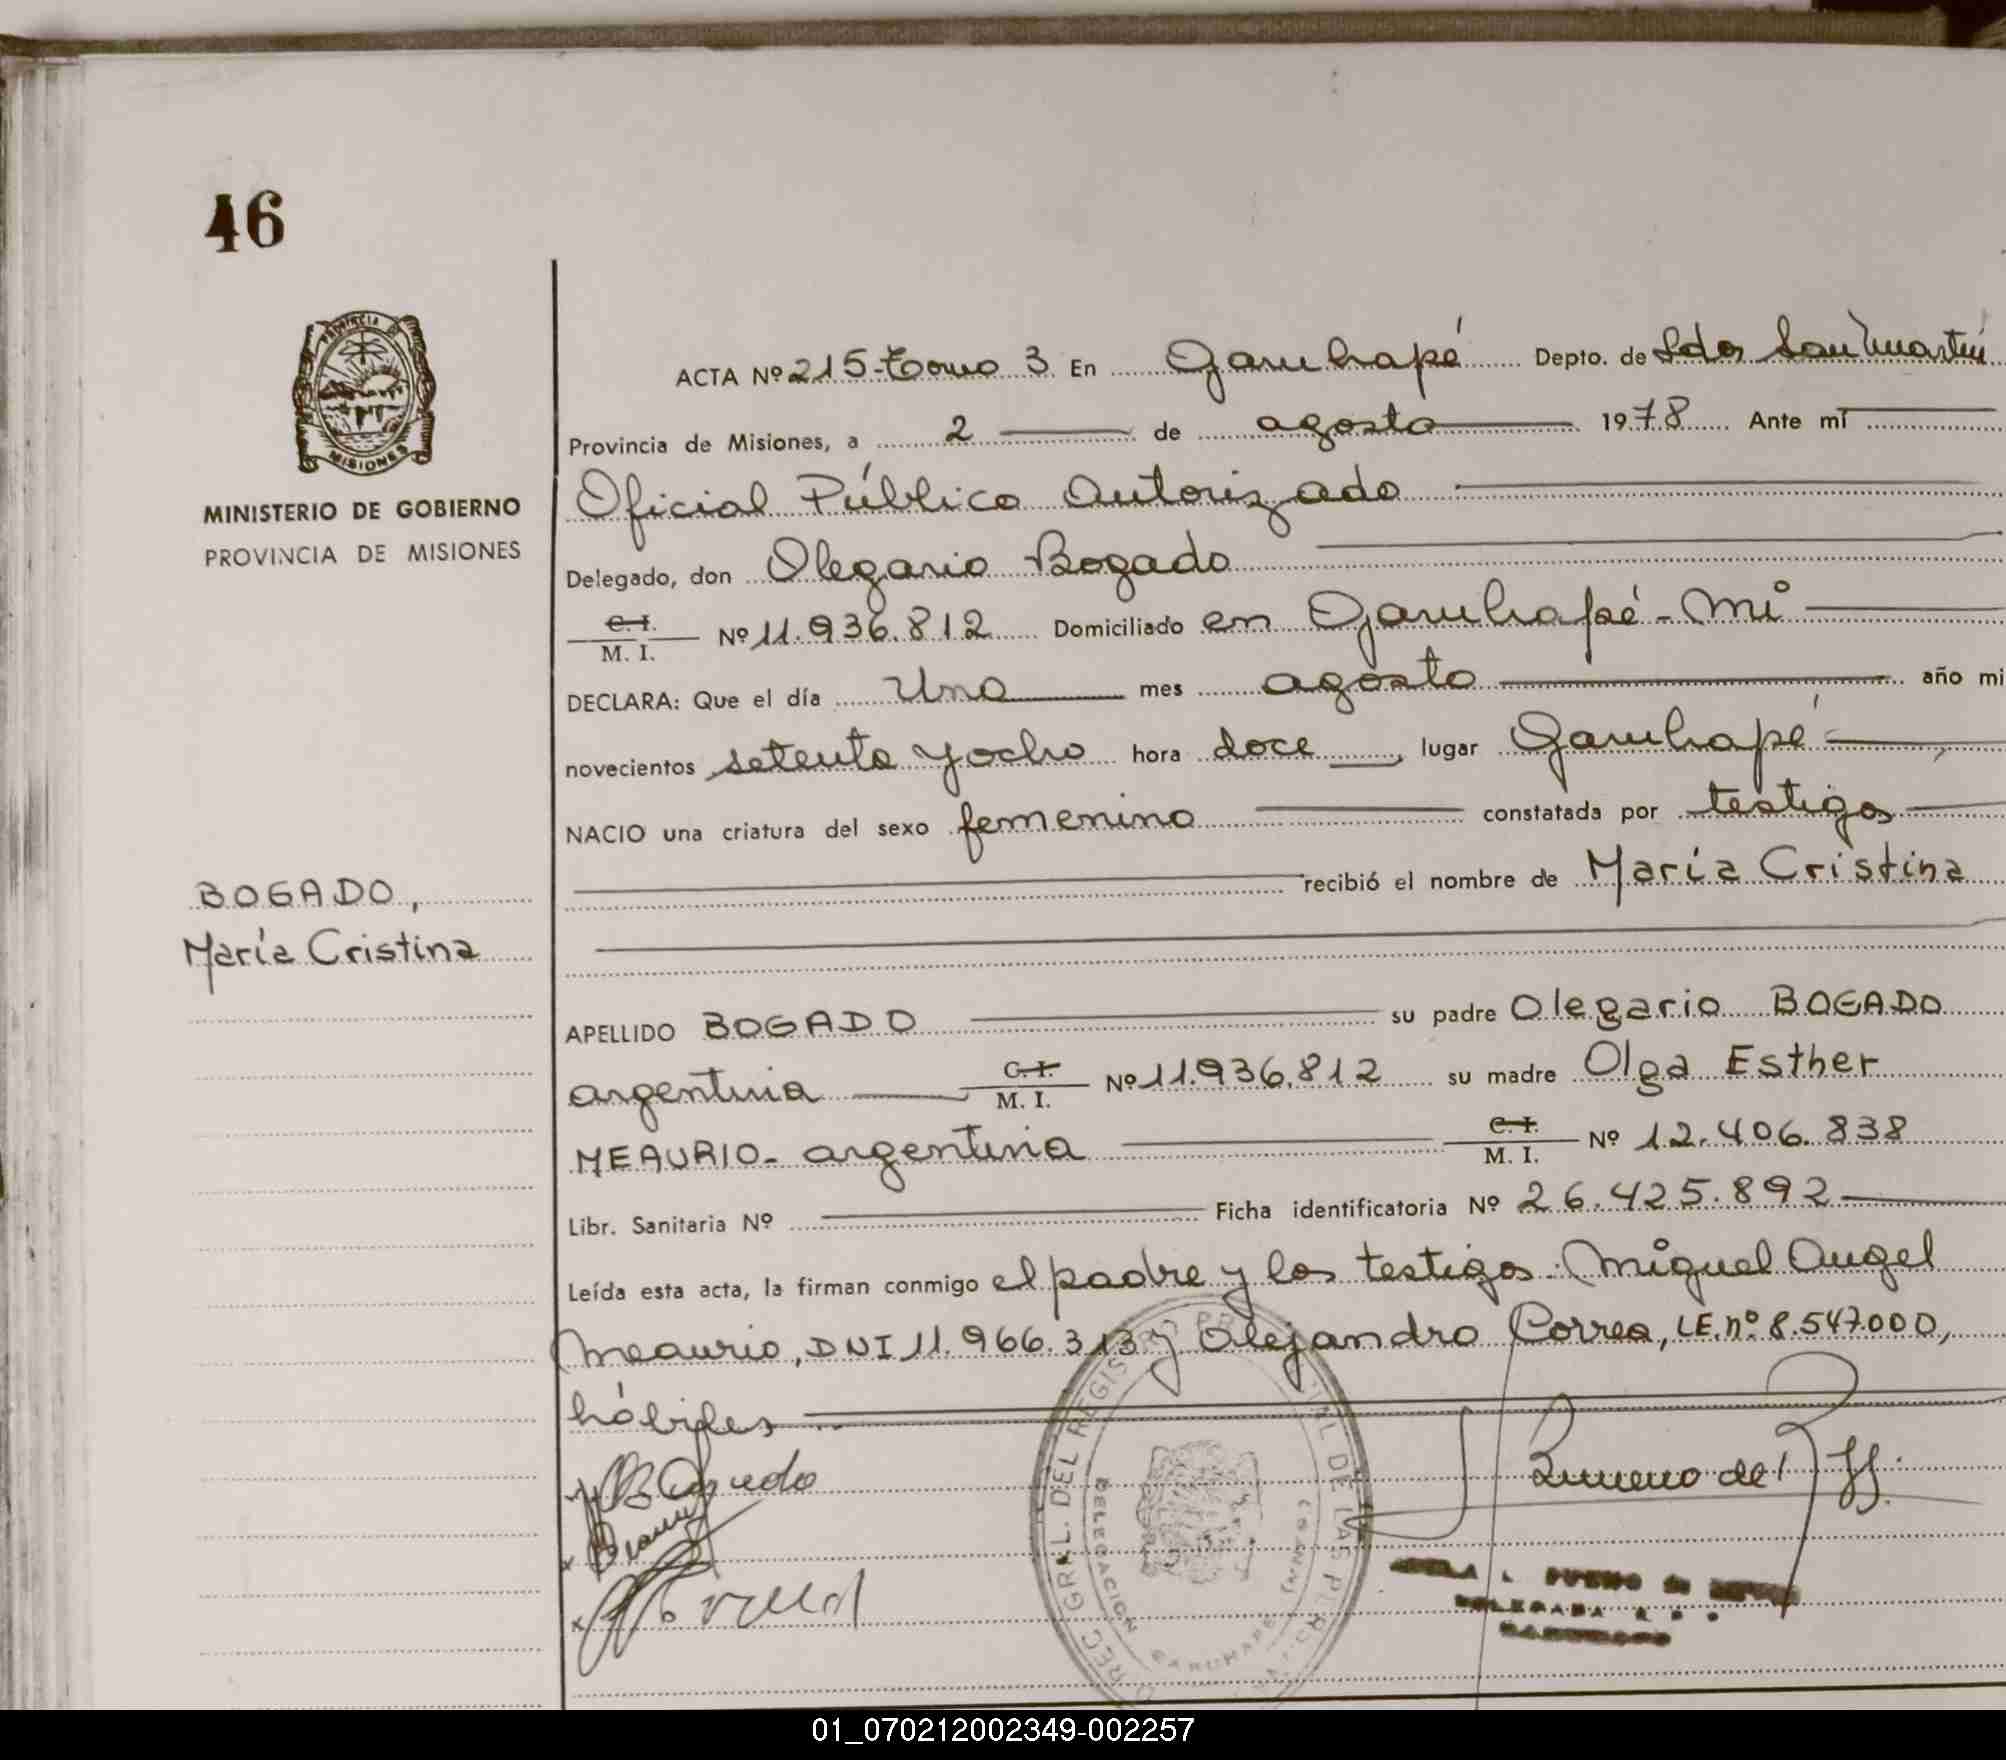 46
PROVINCIA DE
MISIONES
MINISTERIO DE GOBIERNO
PROVINCIA DE MISIONES
BOGADO,
María Cristina
ACTA Nº 215-Tomo 3 En Garuhapé Depto. de Ldor San Martín
Provincia de Misiones, a 2 de agosto 1978 Ante mí
Oficial Público Autorizado
Delegado, don Olegario Bogado
C. I.
M. I. Nº 11.936.812 Domiciliado en Garuhapé - Mi
DECLARA: Que el día Uno mes agosto año mi
novecientos setenta y ocho hora doce, lugar Garuhapé
NACIO una criatura del sexo femenino constatada por testigos
recibió el nombre de María Cristina
APELLIDO BOGADO su padre Olegario BOGADO
argentina C. I. M. I. Nº 11.936.812 su madre Olga Esther
MEAURIO - argentina C. I. M. I. Nº 12.406.838
Libr. Sanitaria Nº Ficha identificatoria Nº 26.425.892
Leída esta acta, la firman conmigo el padre y los testigos: Miguel Angel
Meaurio, DNI 11.966.313 y Alejandro Correa, LE. nº 8.547.000,
hábiles
DELEGACION GARUHAPE (MNES)
01_070212002349-002257